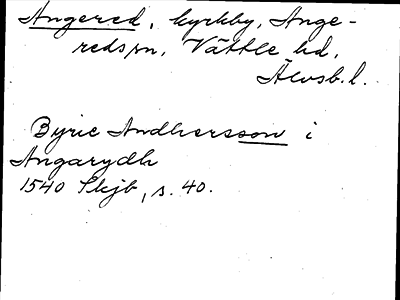 Angered, kyrkby, Ange-
redssn, Vättle hd,
Älvsb. l.
Byrie Andhersson i
Angarydh
1540 Skjb, s. 40.